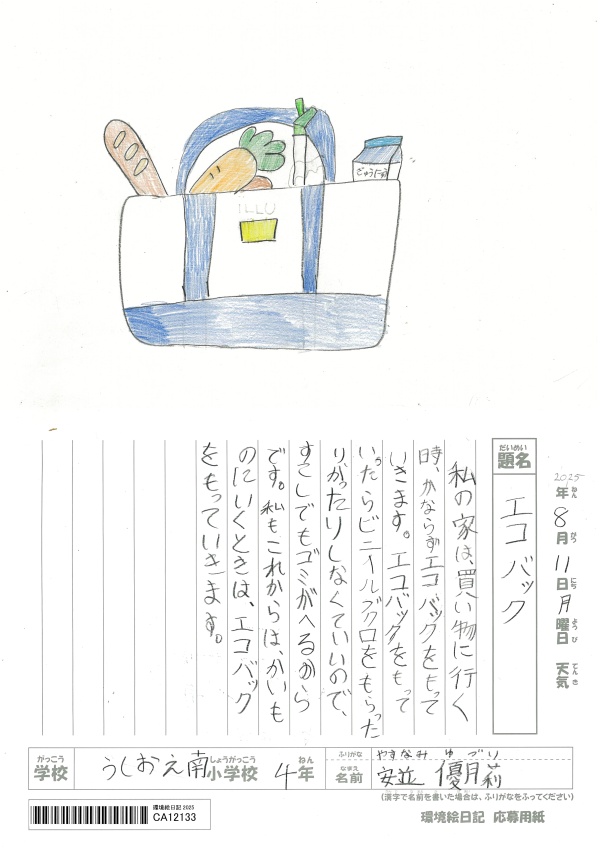 ぎゅうにゅう
ILLU
2025年ねん8月がつ11日にち月曜日ようび 天気てんき
だいめい
題名
エコバック
私の家は、買い物に行く
時、かならずエコバックをもって
いきます。エコバックをもって
いったらビニールブクロをもらった
りかったりしなくていいので、
すこしでもゴミがへるから
です。私もこれからは、かいも
のにいくときは、エコバック
をもっていきます。
がっこう
学校
うしおえ南小学校しょうがっこう 4年ねん
ふりがな やすなみ ゆづり
なまえ
名前 安並 優月莉
(漢字で名前を書いた場合は、ふりがなをふってください)
環境絵日記 2025
CA12133
環境絵日記 応募用紙